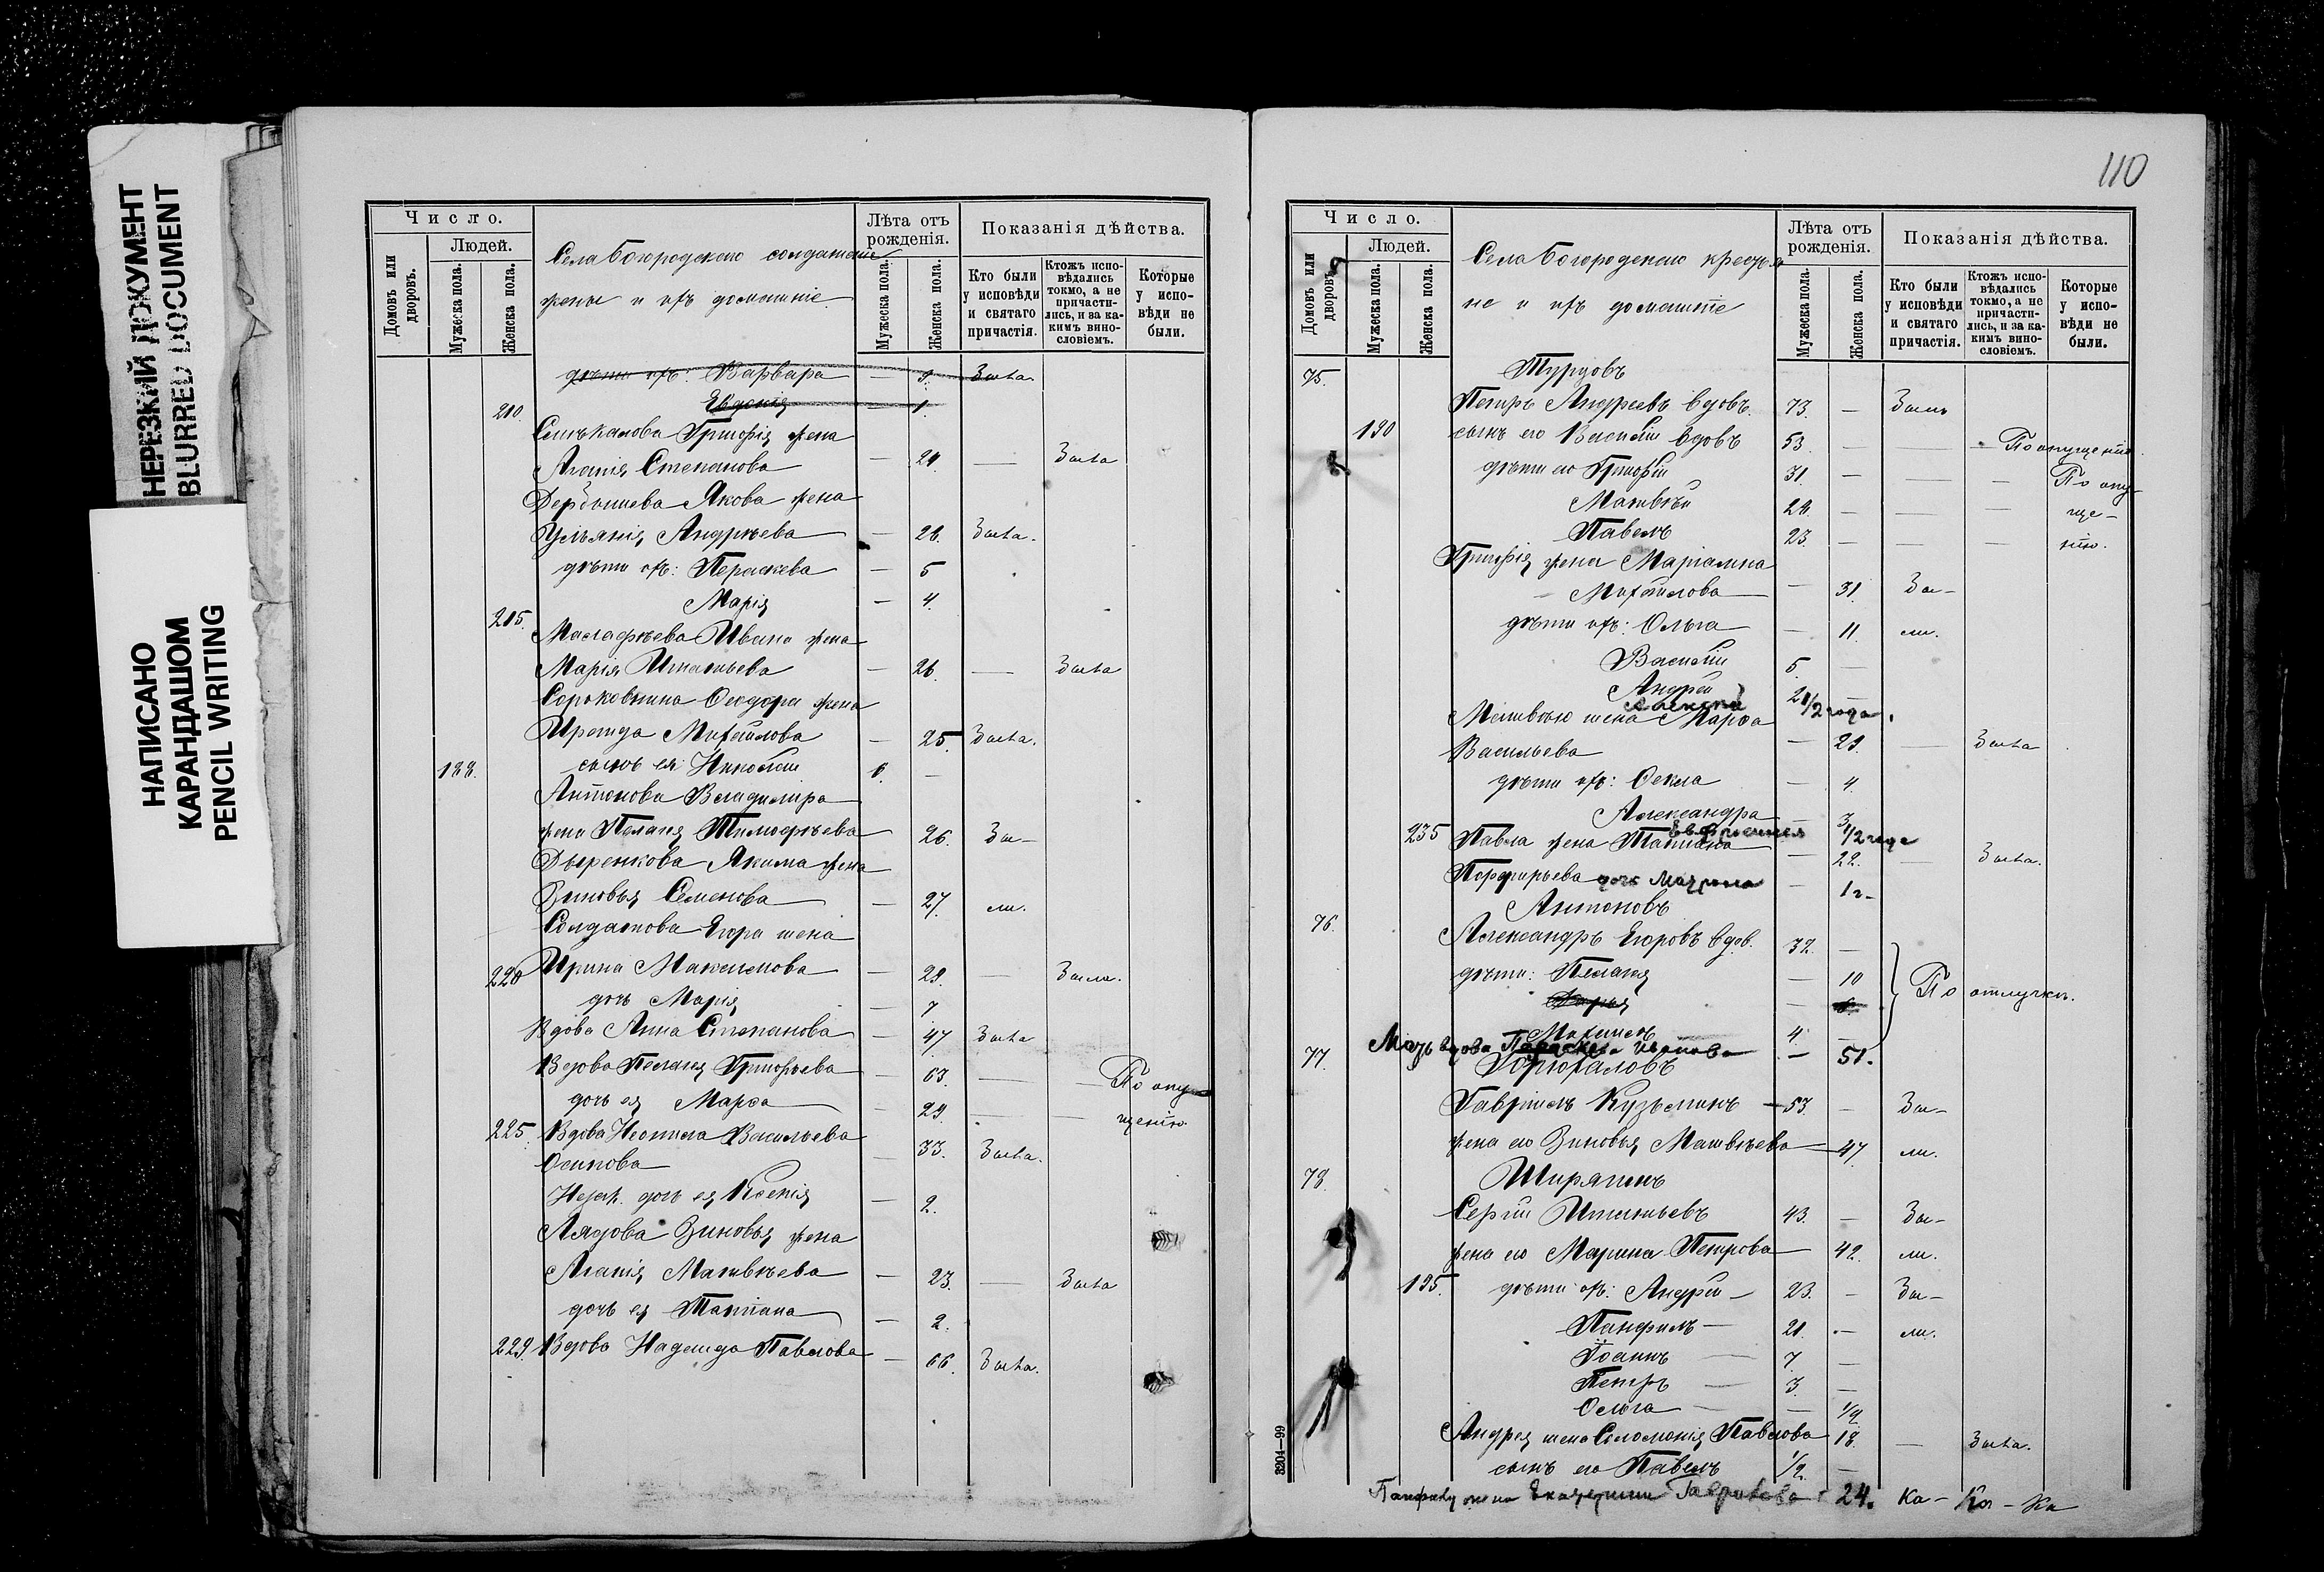 НЕРЕЗКИЙ ДОКУМЕНТ
BLURRED DOCUMENT
НАПИСАНО
КАРАНДАШОМ
PENCIL WRITING
Число.
Домовъ или дворовъ.
Людей.
Мужеска пола.
Женска пола.
Села Богородскаго солдатскіе
жены и ихъ домашніе
Лѣта отъ рожденія.
Мужеска пола.
Женска пола.
Показанія дѣйства.
Кто были у исповѣди и святаго причастія.
Ктожъ исповѣдались токмо, а не причастились, и за какимъ винословіемъ.
Которые у исповѣди не были.
дѣти ихъ: Варвара — 9. Была
Евдокія — 1.
210.
Григорія жена
Агапія Степанова — 29. — Была
Дербышева Якова жена
Ульянія Андреева — 28. Была.
дѣти ихъ: Параскева — 5
Марія — 4.
215.
Малафѣева Ивана жена
Марія Игнатьева — 26. — Была
Сороковнина Ѳеодора жена
Ираида Михайлова — 25. Была.
188. сынъ ея Николай 6. —
Антонова Владимира
жена Пелагія Тимофѣева — 26. Бы-
Дыренкова Якима жена
Зиновья Семенова — 27. ли.
Солдатова Егора жена
220 Ирина Максимова — 29. — Была.
дочь Марія — 7
Вдова Анна Степанова — 47. Была
Вдова Пелагія Григорьева — 63. — — По опу-
дочь ея Марѳа — 29. — — щенію
225. Вдова Неонила Васильева — 33. Была.
Осипова
Незак. дочь ея Ксенія — 2.
Лядова Зиновья жена
Агапія Матвѣева — 23. — Была
дочь ея Татіана — 2.
229. Вдова Надежда Павлова — 66. Была.
110
Число.
Домовъ или дворовъ.
Людей.
Мужеска пола.
Женска пола.
Села Богородскаго крестья
не и ихъ домашніе
Лѣта отъ рожденія.
Мужеска пола.
Женска пола.
Показанія дѣйства.
Кто были у исповѣди и святаго причастія.
Ктожъ исповѣдались токмо, а не причастились, и за какимъ винословіемъ.
Которые у исповѣди не были.
75. Турцовъ
Петръ Андреевъ вдовъ. 73. — Былъ
190 сынъ его Василій вдовъ 53. — — - По опущенію.
дѣти его Григорій 31. — — — По опу-
Матвѣй 29. — — — ще-
Павелъ 23. — — — нію.
Григорія жена Маріамна
Михайлова — 31. Бы-
дѣти ихъ: Ольга — 11. ли.
Василій 5. —
Андрей 2 —
Алексѣй 1/2 года.
Матвѣя жена Марѳа
Васильева — 29. — Была
дѣти ихъ: Ѳекла — 4.
Александра — 3
Евфросинія 1/2 года
235 Павла жена Татіана — 22. — Была.
Порфирьева дочь Матрона — 1 г.
76. Антоновъ
Александръ Егоровъ вдов. 32. —
дѣти: Пелагія — 10 По отлучкѣ.
Дарья — 6.
Михаилъ 4. —
Мать вдова Параскева Иванова — 51.
77. Горюхаловъ
Гавріилъ Кузьминъ — 53. — Бы-
жена его Зиновья Матвѣева — 47. ли.
78. Ширяминъ
Сергій Игнатьевъ 43. — Бы-
жена его Марина Петрова — 42. ли.
195. дѣти ихъ: Андрей — 23. — Бы-
Панфилъ — 21. — ли.
Іоаннъ — 7. —
Петръ — 3. —
Ольга — — 1/2
Андрея жена Соломонія Павлова 18. — Была.
сынъ его Павелъ 1/2. —
Панфила жена Екатерина Гаврилова 24. Ка - Ка - Ка
3204—99